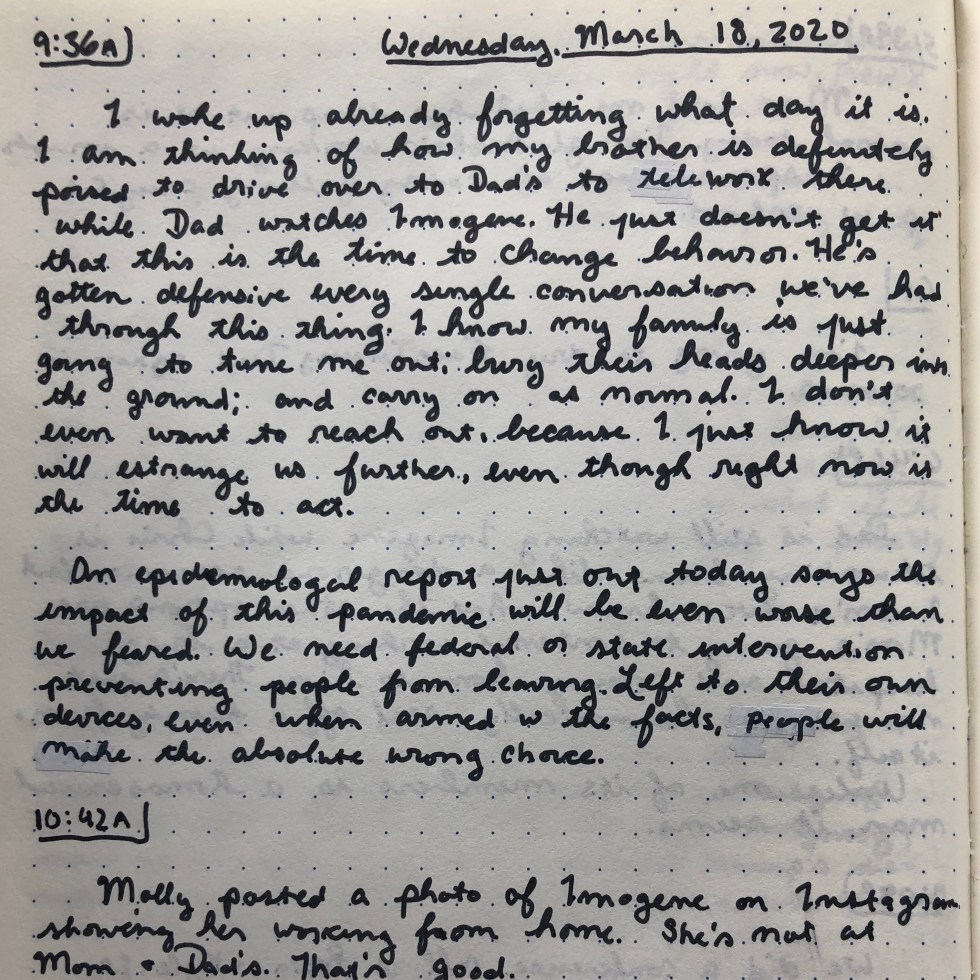 9:36A
Wednesday, March 18, 2020
I woke up already forgetting what day it is.
I am thinking of how my brother is definitely
poised to drive over to Dad's to telework there
while Dad watches Imogene. He just doesn't get it
that this is the time to change behavior. He's
gotten defensive every single conversation we've had
through this thing. I know my family is just
going to tune me out; bury their heads deeper into
the ground; and carry on as normal. I don't
even want to reach out, because I just know it
will estrange us further, even though right now is
the time to act.
An epidemiologal report just out today says the
impact of this pandemic will be even worse than
we feared. We need federal or state intervention
preventing people from leaving. Left to their own
devices, even when armed w the facts, people will
make the absolute wrong choice.
10:42A
Molly posted a photo of Imogene on Instagram
showing her working from home. She's not at
Mom & Dad's. That's good.